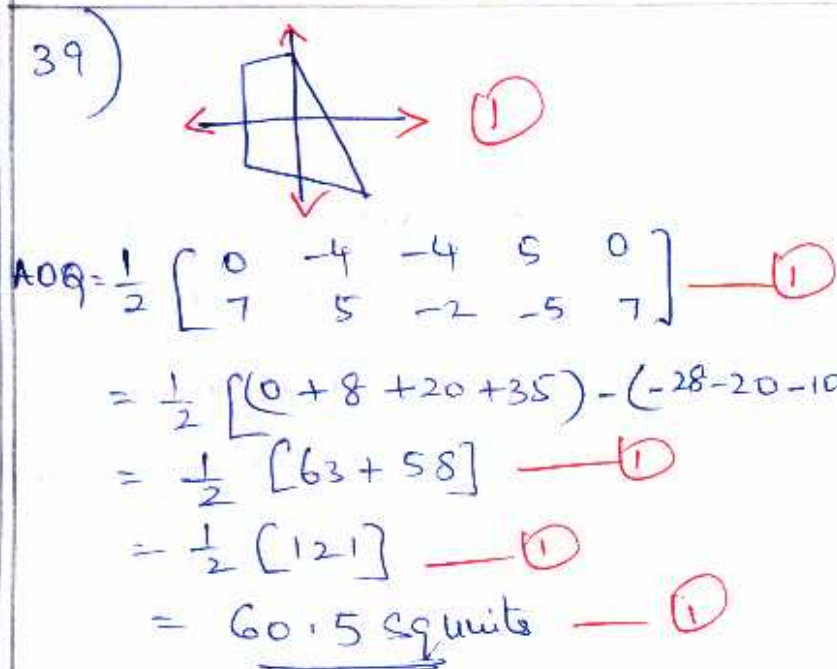 39)
①
AOQ = 1/2 [ 0 -4 -4 5 0 ——— ①
7 5 -2 -5 7 ]
= 1/2 [(0 + 8 + 20 + 35) - (-28 - 20 - 10
= 1/2 [63 + 58] ——— ①
= 1/2 [121] ——— ①
= 60.5 sq units — ①